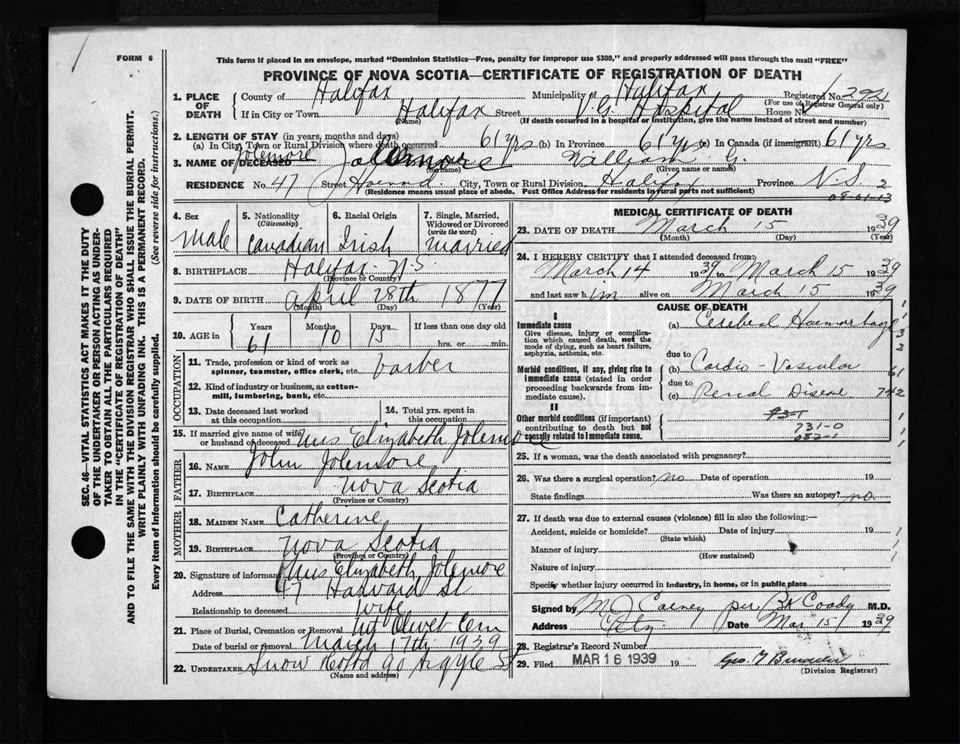 FORM 6
This form if placed in an envelope, marked "Dominion Statistics—Free, penalty for improper use $300," and properly addressed will pass through the mail "FREE"
PROVINCE OF NOVA SCOTIA—CERTIFICATE OF REGISTRATION OF DEATH
SEC. 46—VITAL STATISTICS ACT MAKES IT THE DUTY
OF THE UNDERTAKER OR PERSON ACTING AS UNDER-
TAKER TO OBTAIN ALL THE PARTICULARS REQUIRED
IN THE "CERTIFICATE OF REGISTRATION OF DEATH"
AND TO FILE THE SAME WITH THE DIVISION REGISTRAR WHO SHALL ISSUE THE BURIAL PERMIT.
WRITE PLAINLY WITH UNFADING INK. THIS IS A PERMANENT RECORD.
Every item of information should be carefully supplied. (See reverse side for instructions.)
1. PLACE OF DEATH
County of Halifax Municipality of Halifax Registered No. 292
(For use of Registrar General only)
If in City or Town Halifax Street V.G. Hospital House No.
(Name) (If death occurred in a hospital or institution, give the name instead of street and number)
2. LENGTH OF STAY (in years, months and days)
(a) In City, Town or Rural Division where death occurred 61 yrs (b) In Province 61 yrs (c) In Canada (if immigrant) 61 yrs
Jolemore
3. NAME OF DECEASED William G.
(Surname) (Given name or names)
RESIDENCE No. 47 Street City, Town or Rural Division Halifax Province N.S. 2
(Residence means usual place of abode. Post Office Address for residents in rural parts not sufficient)
08-01-13
4. Sex
male
5. Nationality
(Citizenship)
Canadian
6. Racial Origin
Irish
7. Single, Married,
Widowed or Divorced
(write the word)
married
8. BIRTHPLACE Halifax N.S.
(Province or Country)
9. DATE OF BIRTH April 28th 1877
(Month) (Day) (Year)
10. AGE in
Years Months Days If less than one day old
61 10 15 hrs. or min.
OCCUPATION
11. Trade, profession or kind of work as
spinner, teamster, office clerk, etc. barber
12. Kind of industry or business, as cotton-
mill, lumbering, bank, etc.
13. Date deceased last worked
at this occupation
14. Total yrs. spent in
this occupation
15. If married give name of wife
or husband of deceased Mrs Elizabeth Jolemore
FATHER
16. Name John Jolemore
17. Birthplace Nova Scotia
(Province or Country)
MOTHER
18. Maiden Name Catherine
19. Birthplace Nova Scotia
(Province or Country)
20. Signature of informant Mrs Elizabeth Jolemore
Address 47 Harvard St
Relationship to deceased wife
21. Place of Burial, Cremation or Removal Mt Olivet Cem
Date of burial or removal March 17th 1939
22. Undertaker Snow 90 Argyle St
(Name and address)
MEDICAL CERTIFICATE OF DEATH
23. DATE OF DEATH March 15 1939
(Month) (Day) (Year)
24. I HEREBY CERTIFY that I attended deceased from:
March 14 1939 to March 15 1939
and last saw him alive on March 15 1939
CAUSE OF DEATH
I
Immediate cause
Give disease, injury or complica-
tion which caused death, not the
mode of dying, such as heart failure,
asphyxia, asthenia, etc.
(a) Cerebral Haemorrhage
due to
Morbid conditions, if any, giving rise to
immediate cause (stated in order
proceeding backwards from im-
mediate cause).
(b) Cardio-Vascular
due to
(c) Renal Disease
II
Other morbid conditions (if important)
contributing to death but not
causally related to immediate cause.
93-1
731-0
082-1
25. If a woman, was the death associated with pregnancy?
26. Was there a surgical operation? no Date of operation 19
State findings Was there an autopsy? no.
27. If death was due to external causes (violence) fill in also the following:—
Accident, suicide or homicide? Date of injury 19
(State which)
Manner of injury
(How sustained)
Nature of injury
Specify whether injury occurred in industry, in home, or in public place
Signed by M J Carney per M.D.
Address City Date Mar 15 1939
28. Registrar's Record Number
29. Filed MAR 16 1939 19
(Division Registrar)